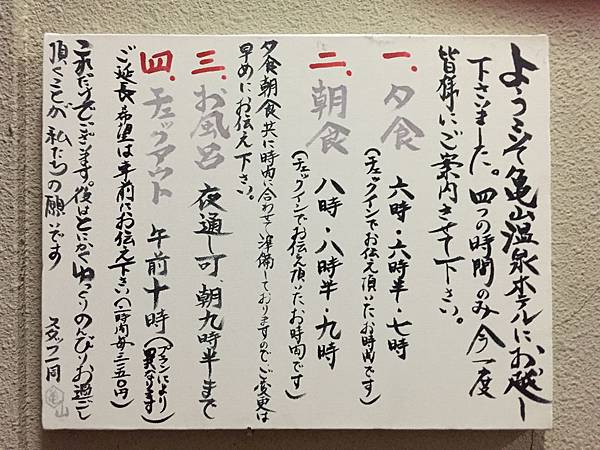 ようこそ亀山温泉ホテルにお越し
下さいました。四つの時間のみ今一度
皆様にご案内させて下さい。
一、夕食 六時・六時半・七時
(チェックインでお伝え頂いたお時間です)
二、朝食 八時・八時半・九時
(チェックインでお伝え頂いたお時間です)
夕食朝食共に時間に合わせて準備しておりますのでご変更は
早めにお伝え下さい。
三、お風呂 夜通し可、朝九時半まで
四、チェックアウト 午前十時(プランにより異なります)
ご延長希望は午前にお伝え下さい(一時間毎三二五〇円)
これだけでございます。後はとにかくゆっくりのんびりお過ごし
頂くことが私たちの願いです
スタッフ一同 亀山